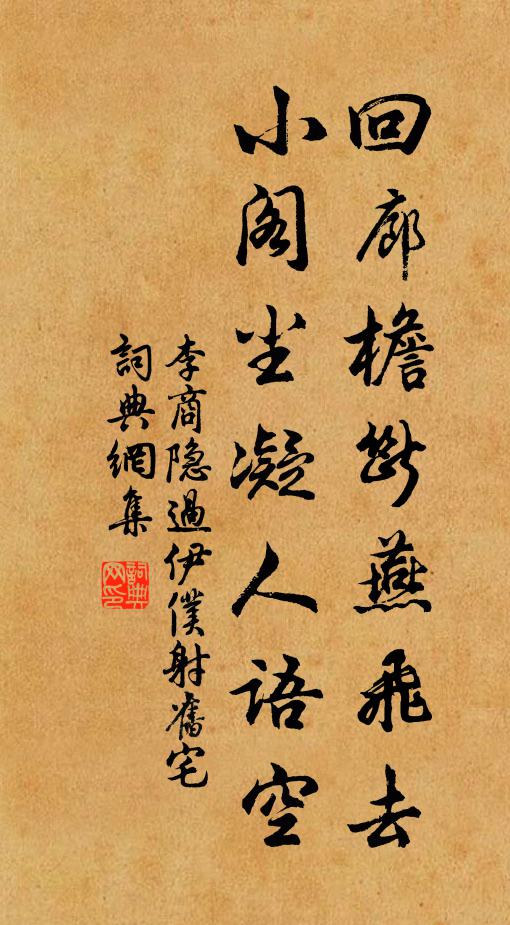 回廊檐断燕飛去
小阁尘凝人语空
李商隐過伊僕射舊宅
詞典網集
詞典
网印